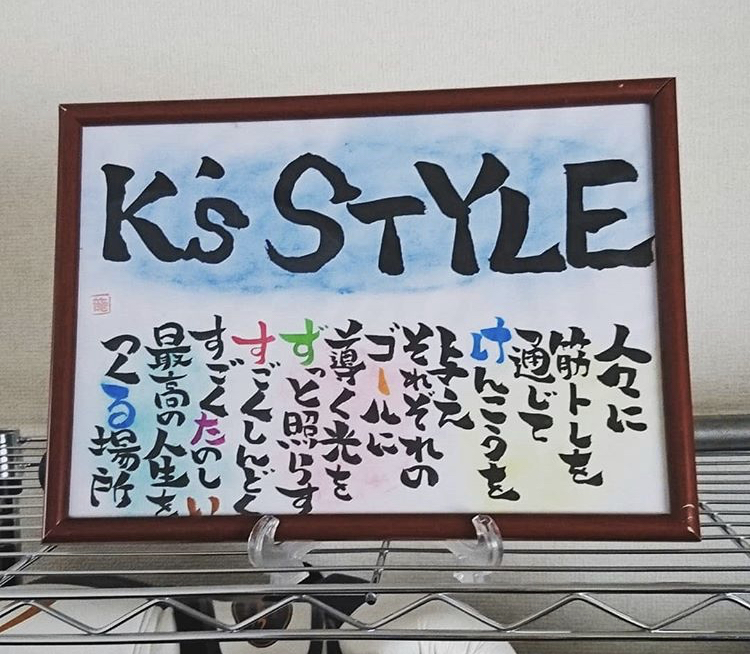 K's STYLE
人々に
筋トレを
通じて
けんこうを
与え
それぞれの
ゴールに
導く光を
ずっと照らす
すごくしんどく
すごくたのしい
最高の人生を
つくる場所